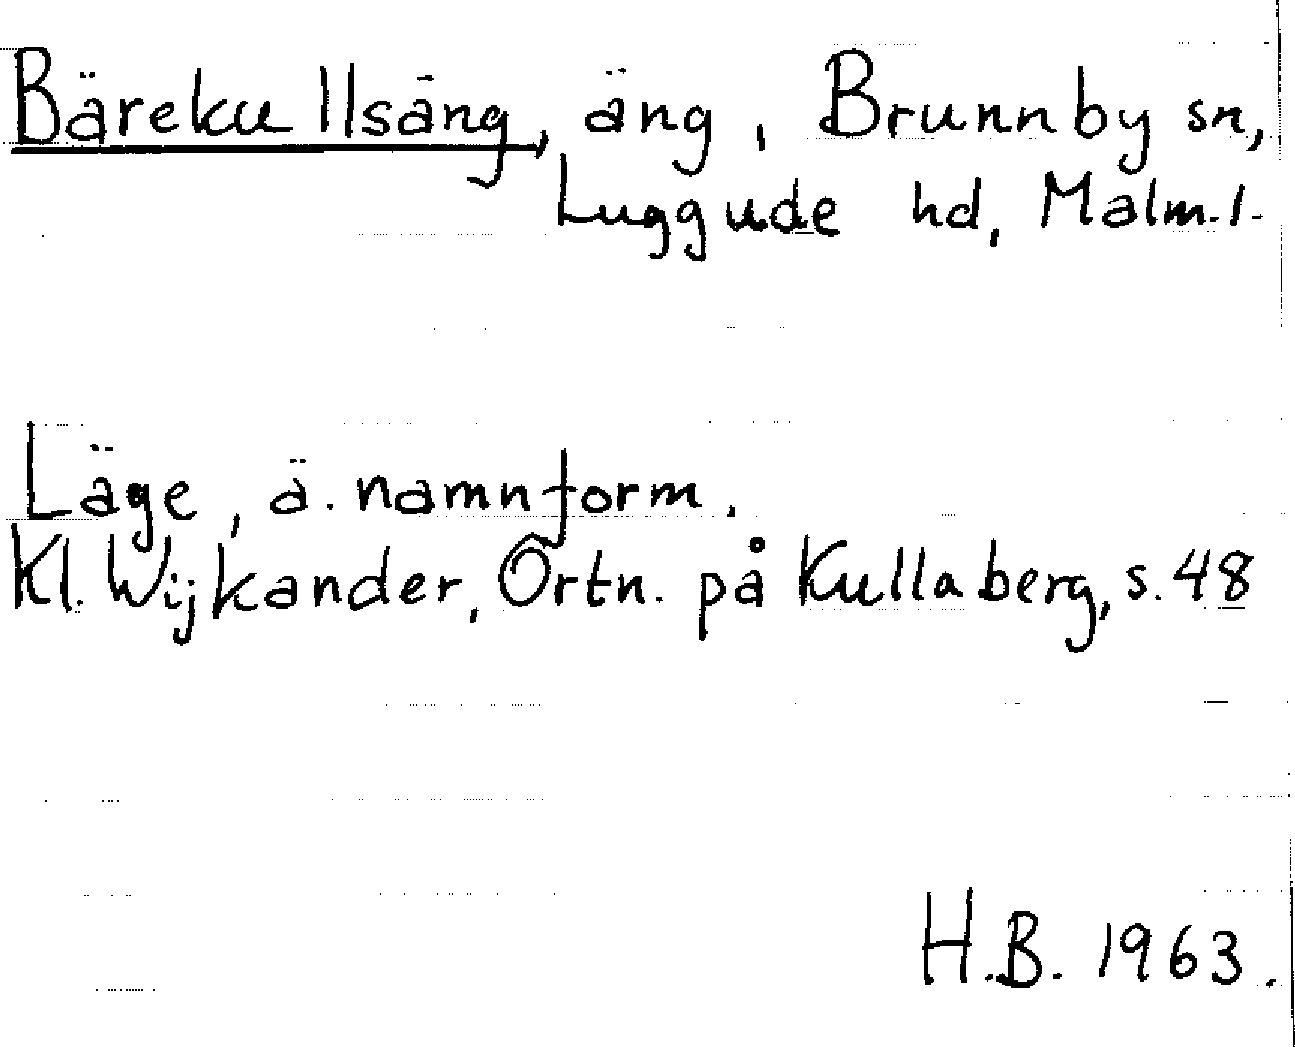 Bärekullsäng, äng, Brunnby sn,
Luggude hd, Malm.l.
Läge, ä. namnform.
Kl. Wijkander, Ortn. på Kullaberg, s. 48
H.B. 1963.